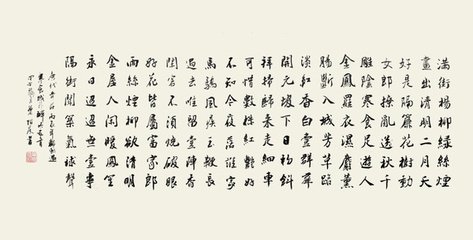 滿街楊柳綠絲煙
畫出清明二月天
好是隔簾花樹動
女郎撩亂送秋千
雕陰寒食足遊人
金鳳羅衣濕麝薰
腸斷入城芳草路
淡紅香白一群群
開元坡下日初斜
拜掃歸来走鈿車
可惜數株紅艷好
不知今夜落誰家
馬驕風疾玉鞭長
過去唯留一陣香
閑客不須燒破眼
好花皆屬富家郎
雨絲煙柳欲清明
金屋人閑暖鳳笙
永日迢迢無一事
隔街聞築氣球聲
唐代韋莊丙辰年鄜州遇
寒食城外醉吟五首